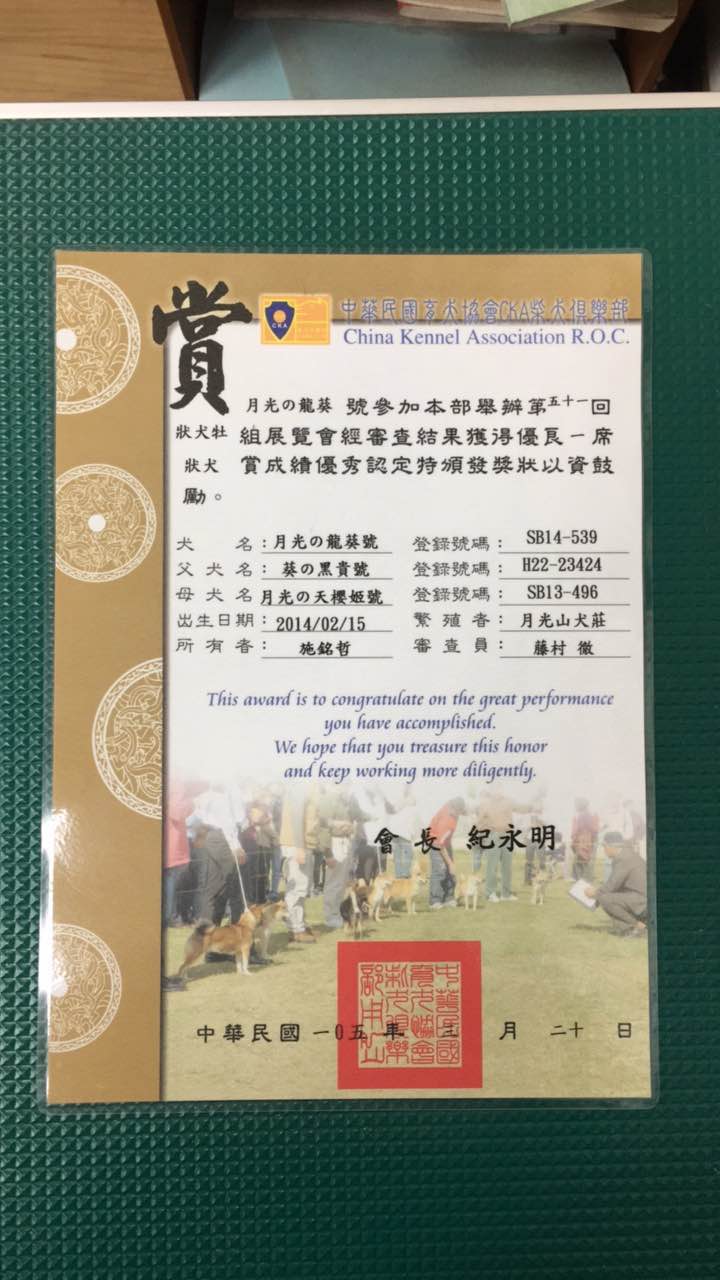 賞
CKA
中華民國育犬協會CKA柴犬俱樂部
China Kennel Association R.O.C.
月光の龍葵 號參加本部舉辦第五十一回
狀犬牡 組展覽會經審查結果獲得優良一席
狀犬 賞成績優秀認定特頒發獎狀以資鼓
勵。
犬名：月光の龍葵號 登錄號碼：SB14-539
父犬名：葵の黑貴號 登錄號碼：H22-23424
母犬名：月光の天櫻姬號 登錄號碼：SB13-496
出生日期：2014/02/15 繁殖者：月光山犬莊
所有者：施銘哲 審查員：藤村 徹
This award is to congratulate on the great performance
you have accomplished.
We hope that you treasure this honor
and keep working more diligently.
會長 紀永明
中華民國
育犬協會
柴犬俱樂
部用印
中華民國 一0五 年 月 二十 日